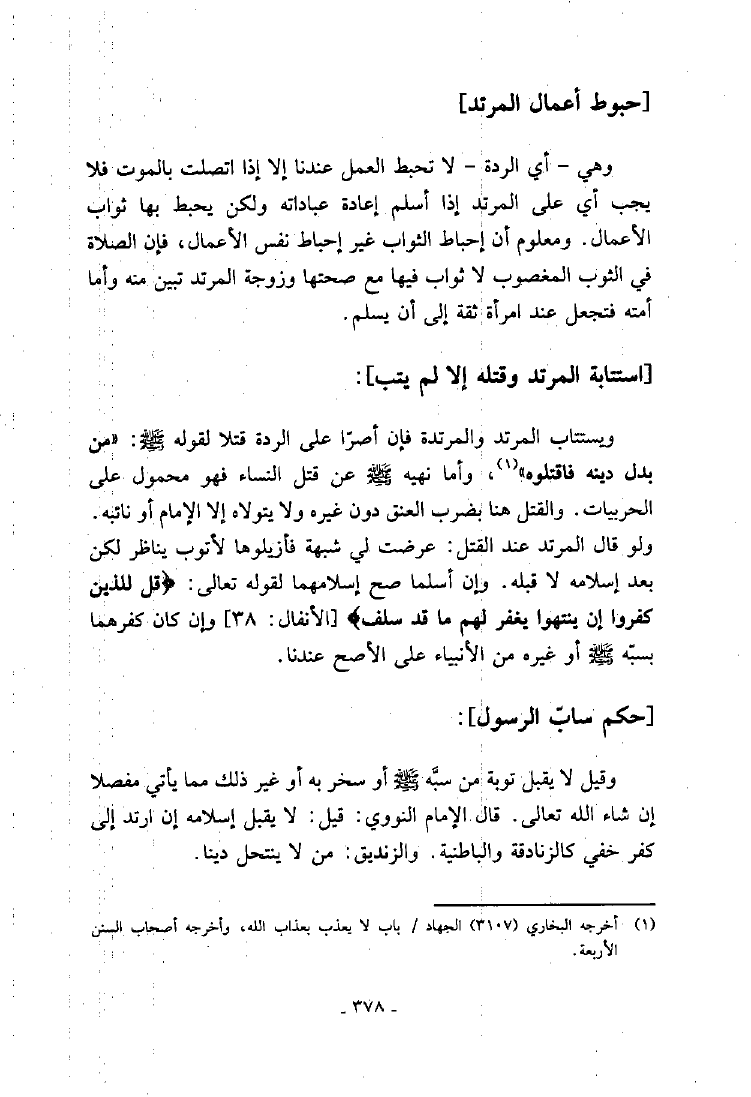 [حبوط أعمال المرتد]
وهي - أي الردة - لا تحبط العمل عندنا إلا إذا اتصلت بالموت فلا
يجب أي على المرتد إذا أسلم إعادة عباداته ولكن يحبط بها ثواب
الأعمال. ومعلوم أن إحباط الثواب غير إحباط نفس الأعمال، فإن الصلاة
في الثوب المغصوب لا ثواب فيها مع صحتها وزوجة المرتد تبين منه وأما
أمته فتجعل عند امرأة ثقة إلى أن يسلم.
[استتابة المرتد وقتله إلا لم يتب]:
ويستتاب المرتد والمرتدة فإن أصرّا على الردة قتلا لقوله ﷺ: «من
بدل دينه فاقتلوه»(١)، وأما نهيه ﷺ عن قتل النساء فهو محمول على
الحربيات. والقتل هنا بضرب العنق دون غيره ولا يتولاه إلا الإمام أو نائبه.
ولو قال المرتد عند القتل: عرضت لي شبهة فأزيلوها لأتوب يناظر لكن
بعد إسلامه لا قبله. وإن أسلما صح إسلامهما لقوله تعالى: ﴿قل للذين
كفروا إن ينتهوا يغفر لهم ما قد سلف﴾ [الأنفال: ٣٨] وإن كان كفرهما
بسبّه ﷺ أو غيره من الأنبياء على الأصح عندنا.
[حكم سابّ الرسول]:
وقيل لا يقبل توبة من سبَّه ﷺ أو سخر به أو غير ذلك مما يأتي مفصلا
إن شاء الله تعالى. قال الإمام النووي: قيل: لا يقبل إسلامه إن ارتد إلى
كفر خفي كالزنادقة والباطنية. والزنديق: من لا ينتحل دينا.
(١) أخرجه البخاري (٣١٠٧) الجهاد / باب لا يعذب بعذاب الله، وأخرجه أصحاب السنن
الأربعة.
- ٣٧٨ -